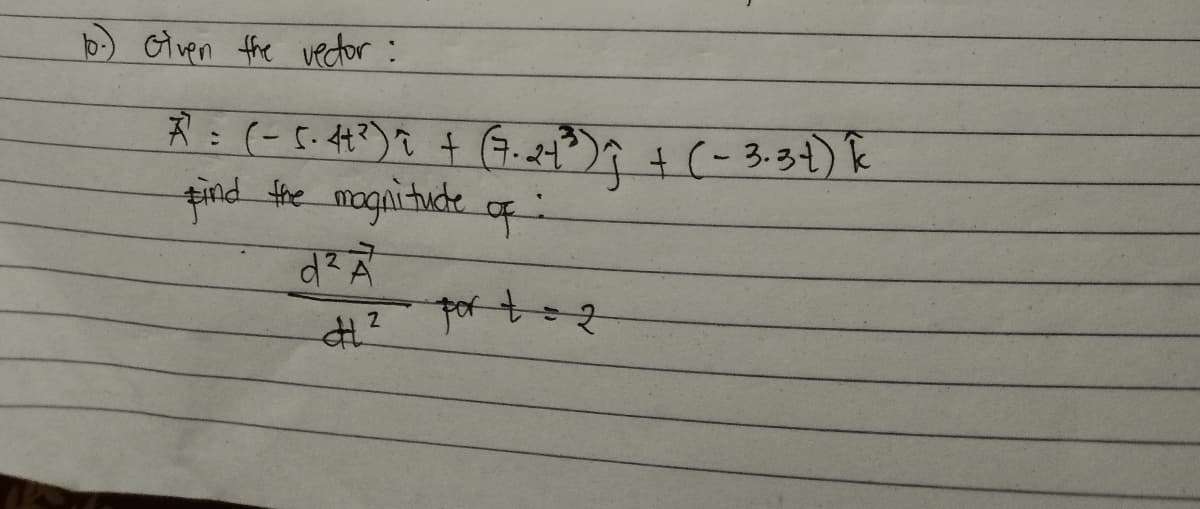 10.) Given the vector :
A⃗ = (-5.4t²) î + (7.2t³) ĵ + (-3.3t) k̂
find the magnitude of :
d²A⃗ / dt² for t = 2